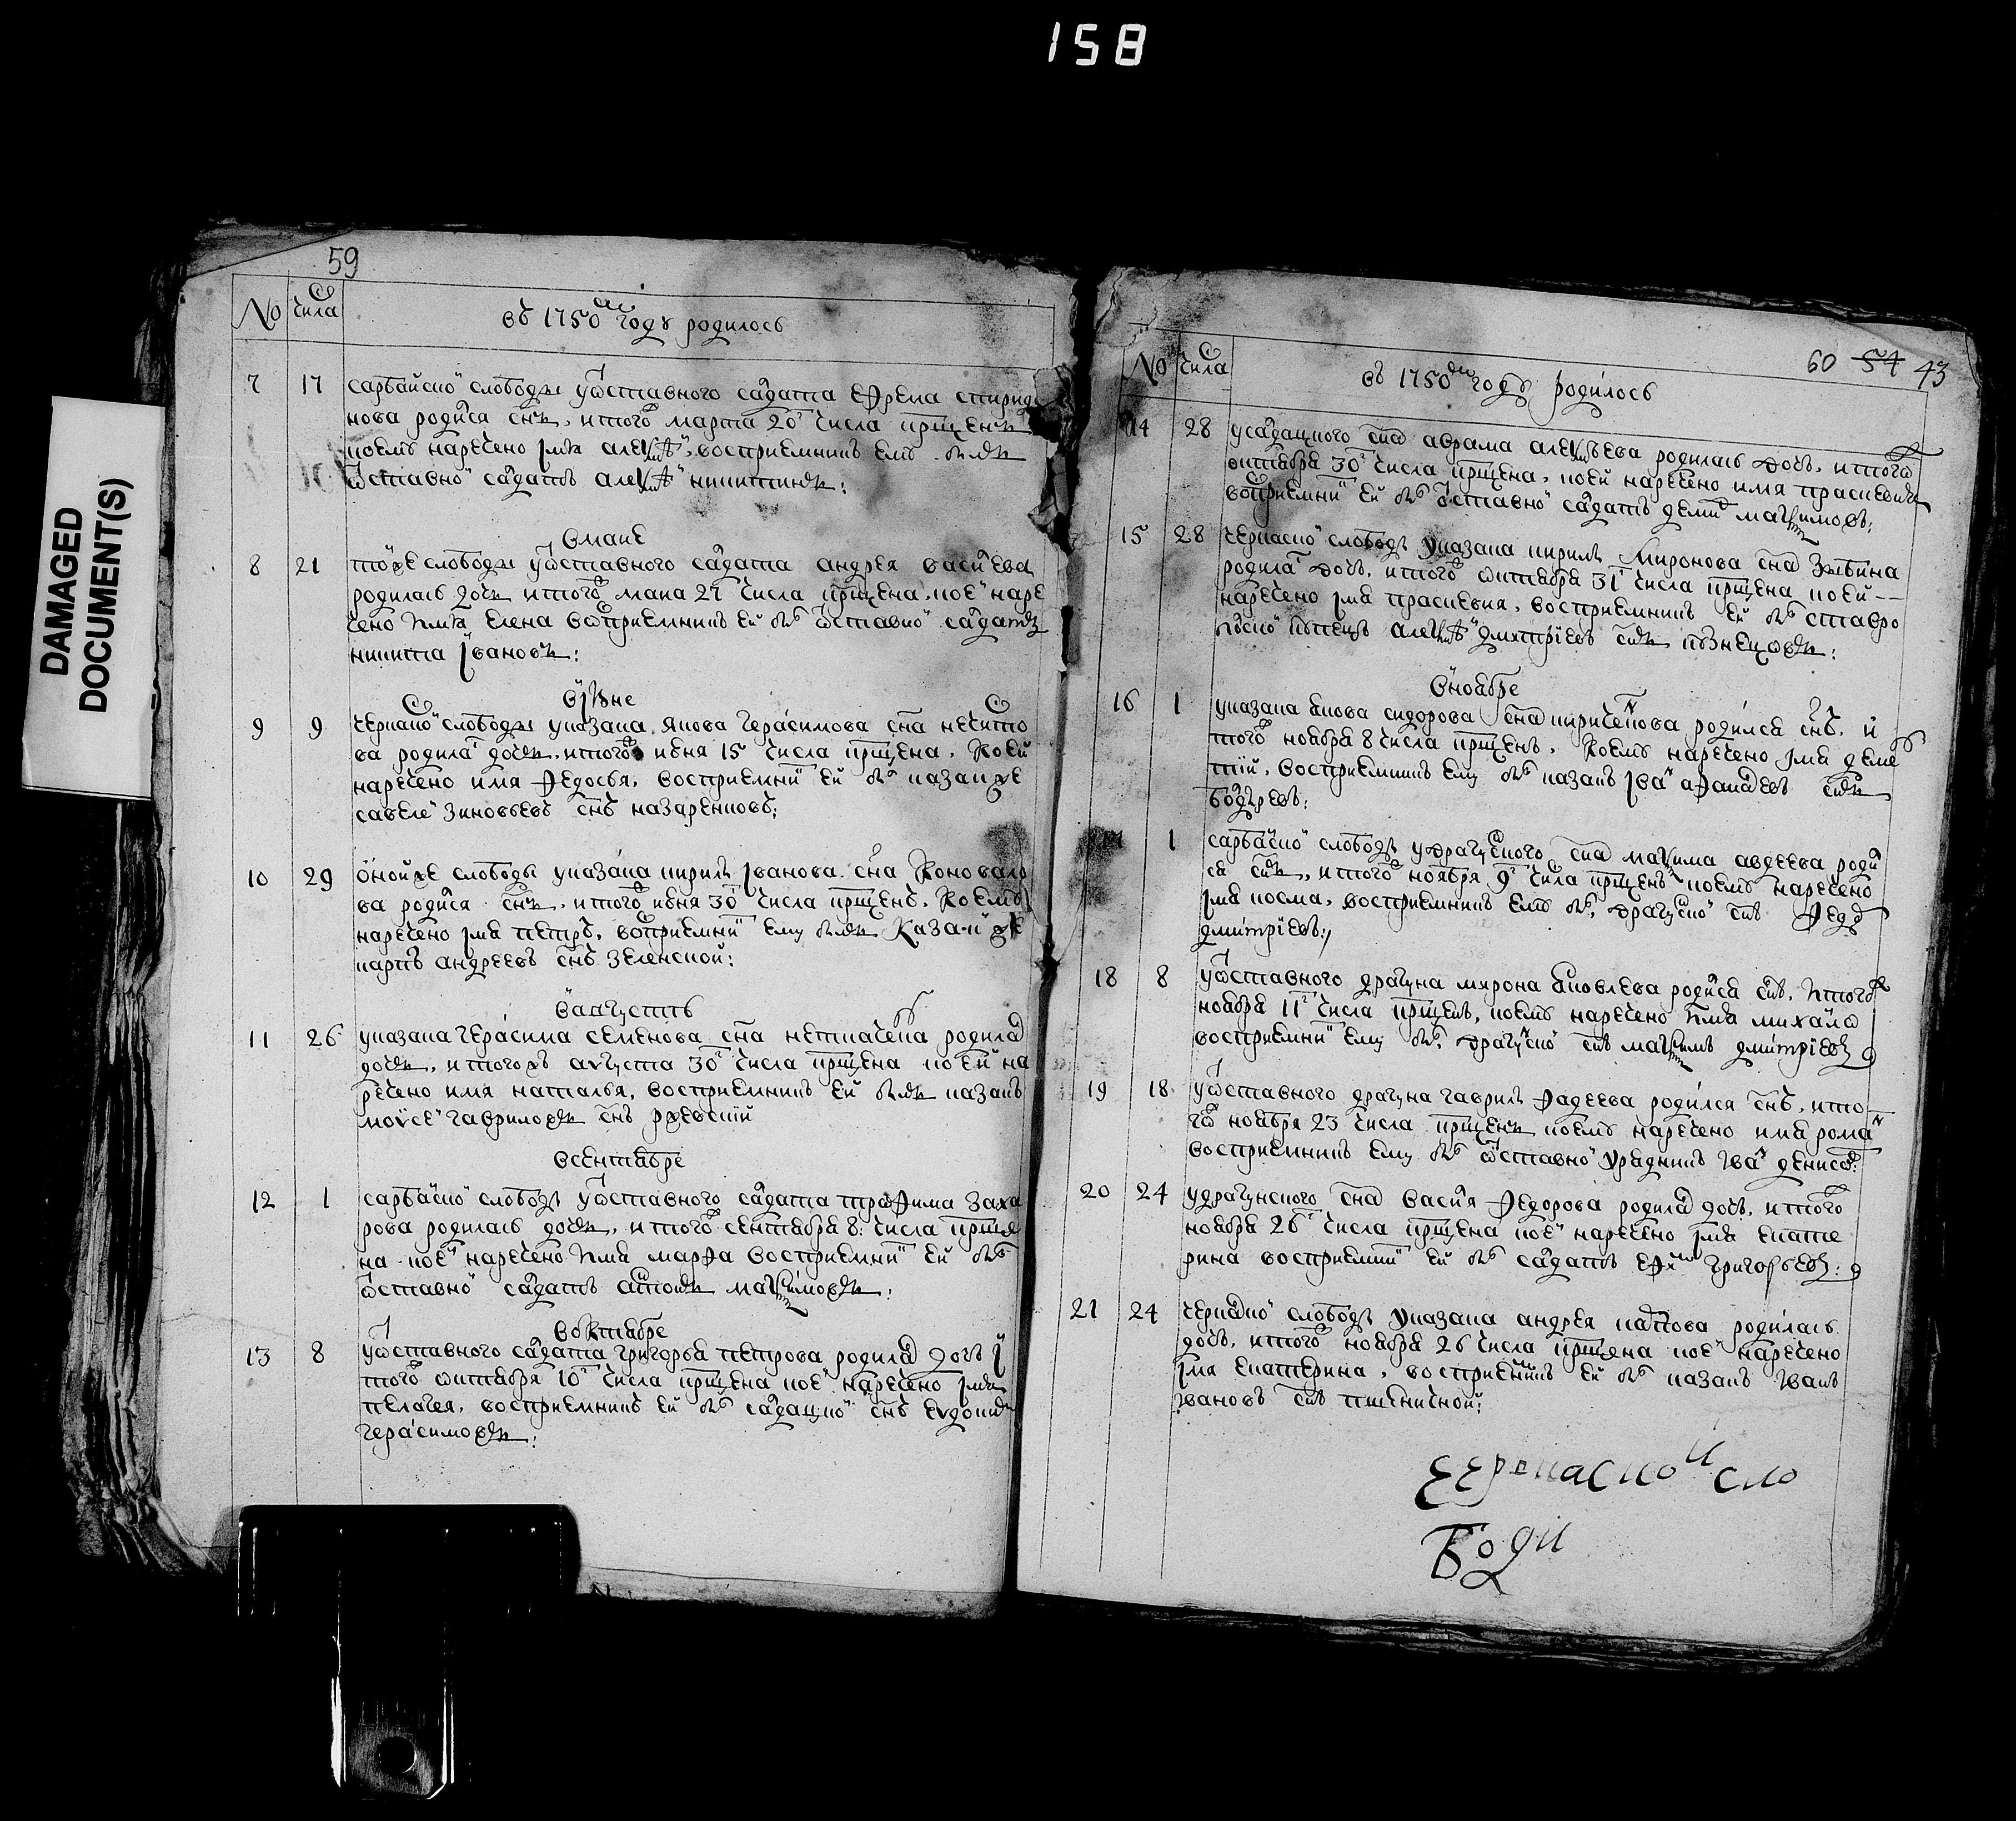 158
DAMAGED
DOCUMENT(S)
59
No числа
въ 1750м году родилось
7 17 сарбайской слободы у отставного салдата ефрема спиридо
нова родился снъ, и того марта 20г числа крщенъ
коему наречено имя алексѣй, восприемникъ ему былъ
отставной салдатъ алексѣй никитинъ:
в маие
8 21 тоже слободы у отставного салдата андрея васильева
родилась дочь и того маиа 27 числа крщена, коей наре
чено имя елена восприемникъ ей былъ отставной салдатъ
никита Iвановъ:
в Iюне
9 9 черкаской слободы у казака якова герасимова сна
ва родилас дочь, и того июня 15 числа крщена, коей
наречено имя федосья, восприемник ей былъ казакъ же
савелей зиновьевъ снъ назаренковъ;
10 29 оной же слободы у казака кирилы Iванова сна коновало
ва родился снъ, и того июня 30 числа крщенъ, коему
наречено имя петръ, восприемник ему былъ казакъ же
карпъ андреевъ снъ зеленской:
в августѣ
11 26 у казака герасима семенова сна родилас
дочь, и того жъ августа 30г числа крщена коей на
речено имя наталья, восприемникъ ей былъ казакъ
моѵсей гавриловъ снъ ржевский
в сентабре
12 1 сарбайской слободы у отставного салдата трофима заха
рова родилась дочь, и того сентабра 8: числа крще
на коей наречено имя марфа восприемник ей былъ
отставной салдатъ максимовъ:
в октабре
13 8 у отставного салдата григорья петрова родилас дочь I
того октабра 10г числа крщена коей наречено имя
пелагея, восприемникъ ей былъ салдацкой снъ евдокимъ
герасимовъ:
60 54 43
No числа
въ 1750м году родилось
14 28 у салдацкого сна аврама алексѣева родилась дочь, и того
октабра 30г числа крщена, коей наречено имя прасковья
восприемник ей былъ отставной салдатъ демид максимовъ:
15 28 черкаской слободы у казака кирилы миронова сна
родилас дочь, и того октабра 31г числа крщена коей --
наречено имя прасковия, восприемникъ ей былъ ставро
полской купецъ алексѣй дмитриевъ снъ кузнецовъ:
в ноабре
16 1 у казака якова сидорова сна кириченкова родился снъ, и
того ноабра 8 числа крщенъ, коему наречено имя деме
тий, восприемникъ ему былъ казакъ Iванъ афанасевъ снъ
бодыревъ:
1 сарбайской слободы у драгунского сна максима авдеева роди
ся снъ, и того ноября 9г числа крщенъ коему наречено
имя козма, восприемникъ ему былъ, драгунской снъ федор
дмитриевъ:
18 8 у отставного драгуна мирона яковлева родился снъ, и того
ноабра 11г числа крщенъ, коему наречено имя михайло
восприемник ему былъ, драгунской снъ максимъ дмитриевъ
19 18 у отставного драгуна гаврилы фадеева родился снъ, и то
го ноабря 23 числа крщенъ коему наречено имя роман
восприемникъ ему былъ отставной урядникъ Iван денисов:
20 24 у драгунского сна василья федорова родилас дочь, и того
ноабря 26г числа крщена коей наречено имя екате
рина восприемник ей былъ салдатъ ефим григорьевъ:
21 24 черкаской слободы у казака андрея карпова родилась
дочь, и того ноабра 26 числа крщена коей наречено
имя екатерина, восприемникъ ей былъ казакъ Iванъ
Iвановъ снъ пшеничной:
черкаской сло
боди